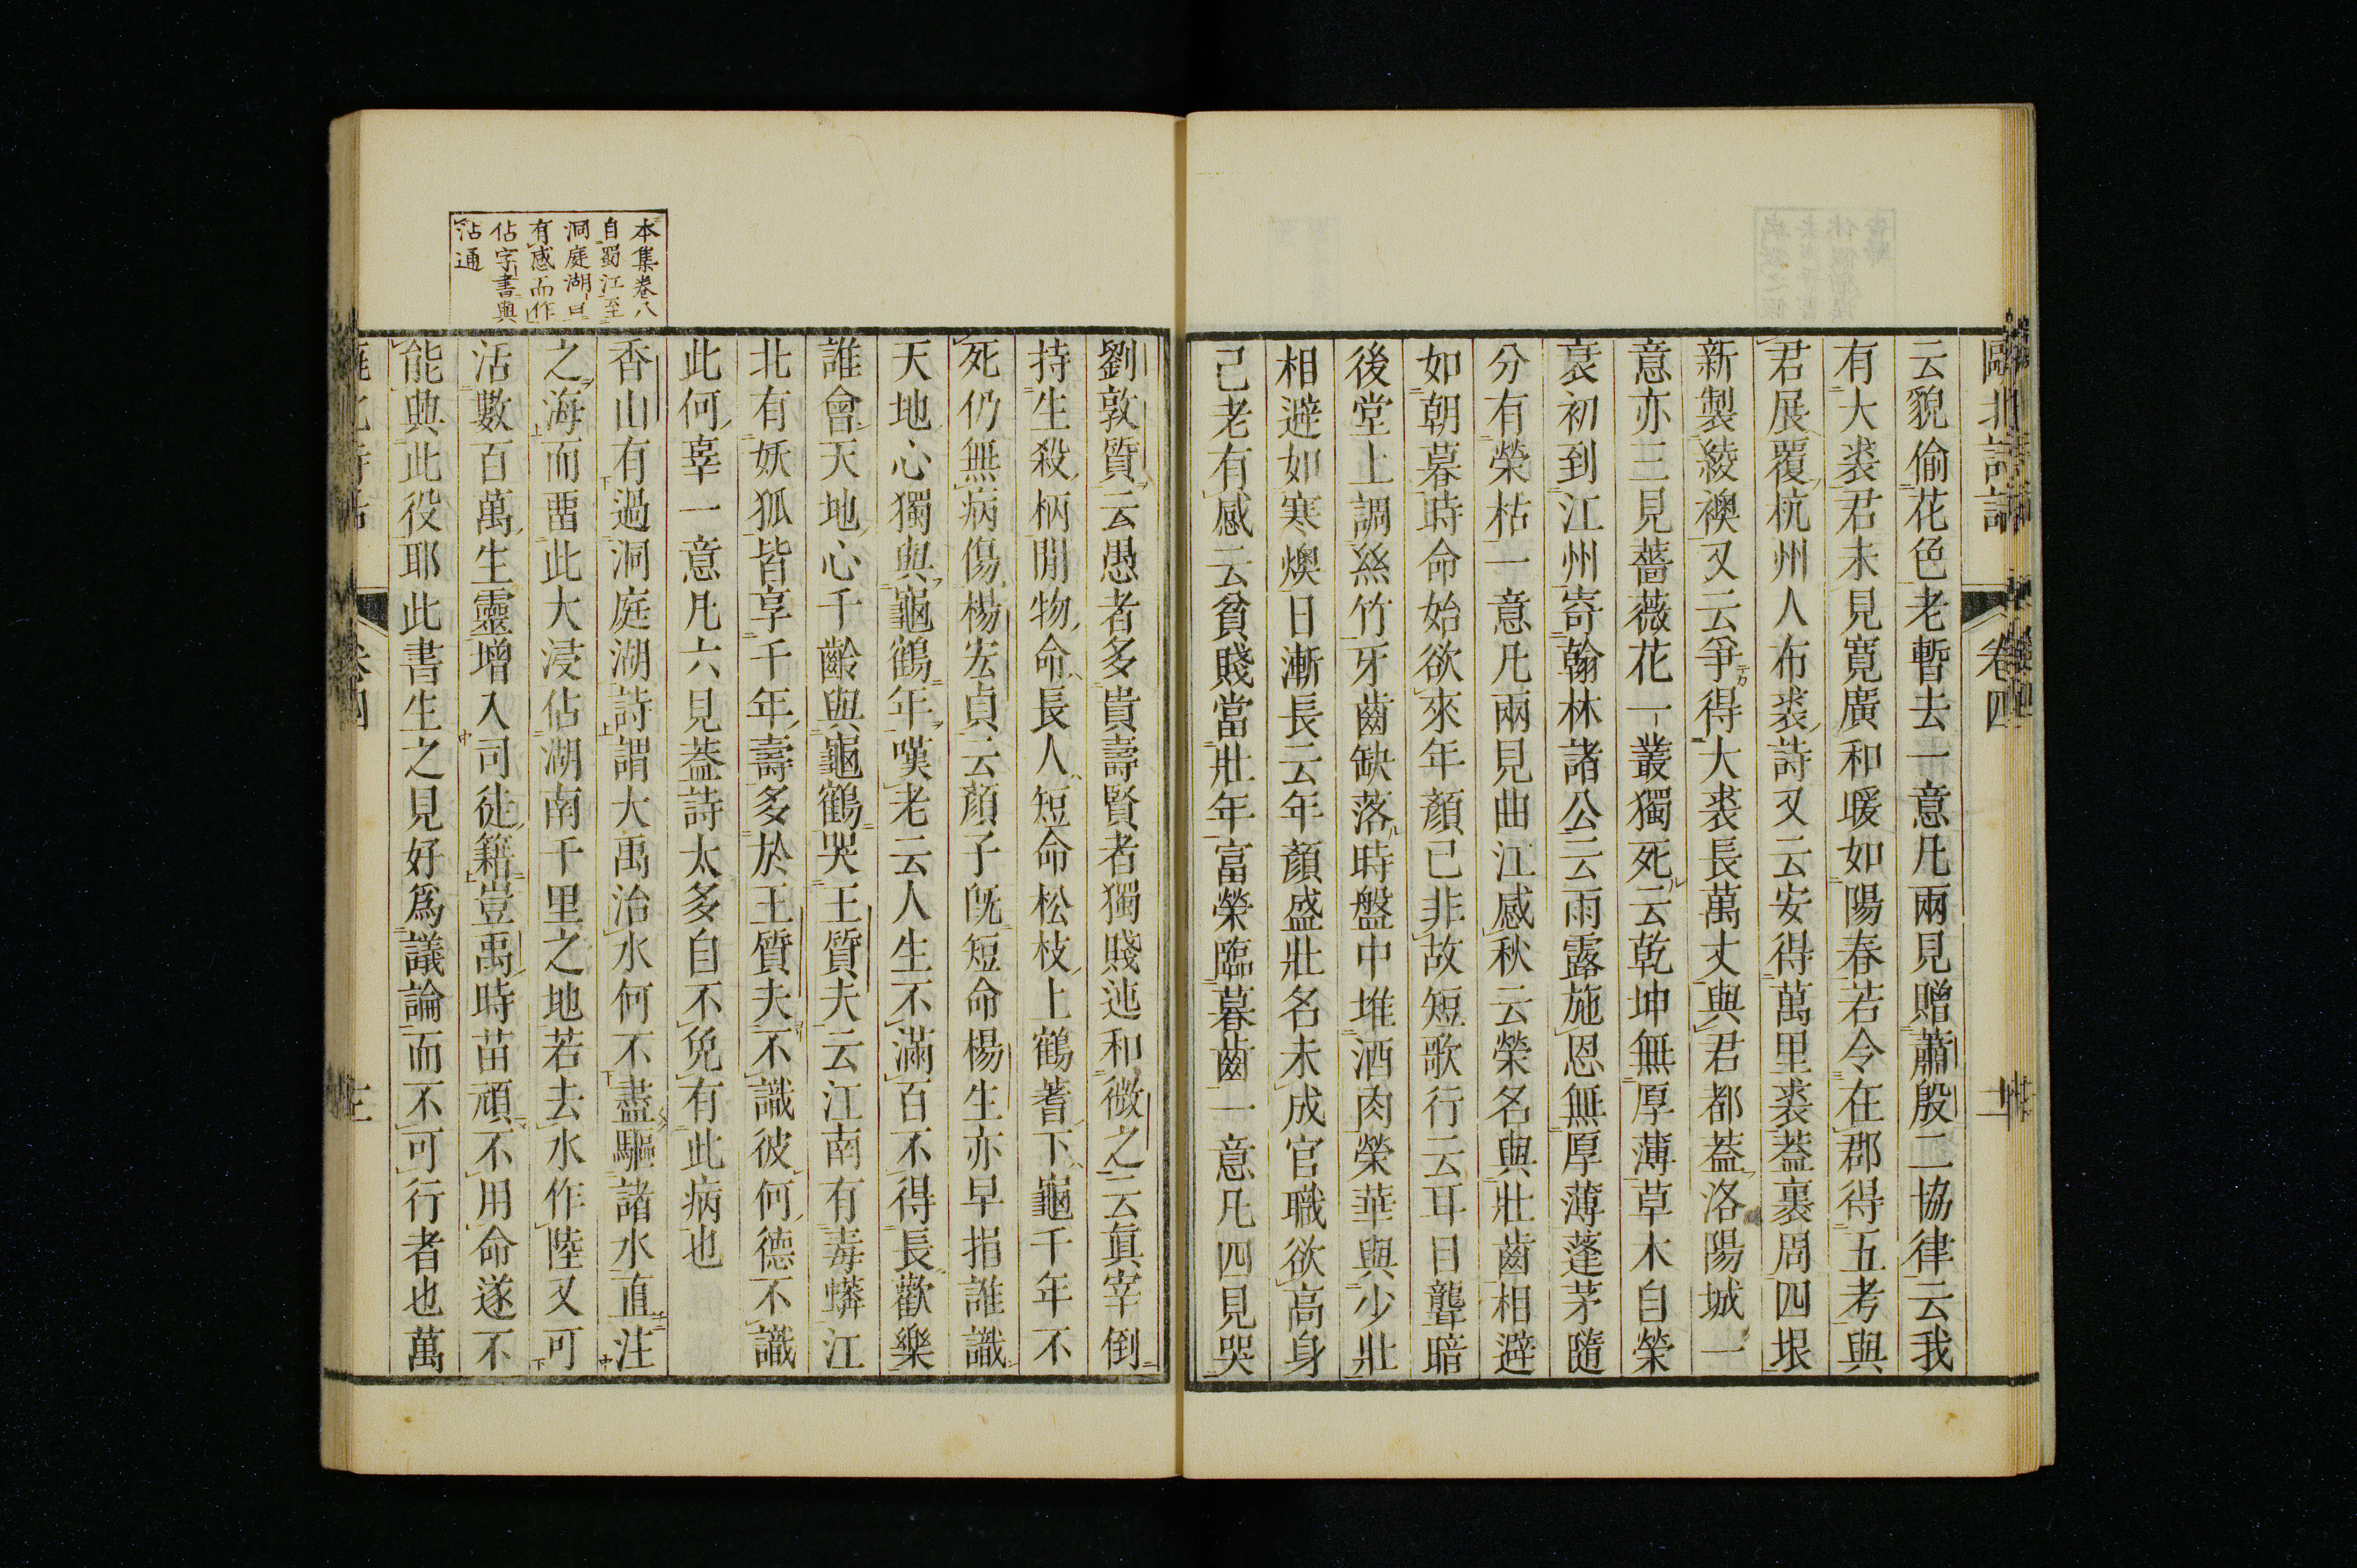 甌北詩話 卷四
云貌偷花色老暫去一意凡兩見贈蕭殷二協律云我
有大裘君未見寬廣和暖如陽春若令在郡得五考與
君展覆杭州人布裘詩又云安得萬里裘蓋裹周四垠
新製綾襖又云爭得大裘長萬丈與君都蓋洛陽城一
意亦三見薔薇花一叢獨死云乾坤無厚薄草木自榮
衰初到江州寄翰林諸公云雨露施恩無厚薄蓬茅隨
分有榮枯一意凡兩見曲江感秋云榮名與壯齒相避
如朝暮時命始欲來年顏已非故短歌行云耳目聾暗
後堂上調絲竹牙齒缺落時盤中堆酒肉榮華與少壯
相避如寒燠日漸長云年顏盛壯名未成官職欲高身
己老有感云貧賤當壯年富榮臨暮齒一意凡四見哭
劉敦質云愚者多貴壽賢者獨賤迍和微之云眞宰倒
持生殺柄閒物命長人短命松枝上鶴蓍下龜千年不
死仍無病傷楊宏貞云顏子旣短命楊生亦早指誰識
天地心獨與龜鶴年嘆老云人生不滿百不得長歡樂
誰會天地心千齡與龜鶴哭王質夫云江南有毒蟒江
北有妖狐皆享千年壽多於王質夫不識彼何德不識
此何辜一意凡六見蓋詩太多自不免有此病也
本集卷八
自蜀江至
洞庭湖口
有感而作
佔字書與
沾通
香山有過洞庭湖詩謂大禹治水何不盡驅諸水直注
之海而畱此大浸佔湖南千里之地若去水作陸又可
活數百萬生靈增入司徒籍豈禹時苗頑不用命遂不
能興此役耶此書生之見好爲議論而不可行者也萬